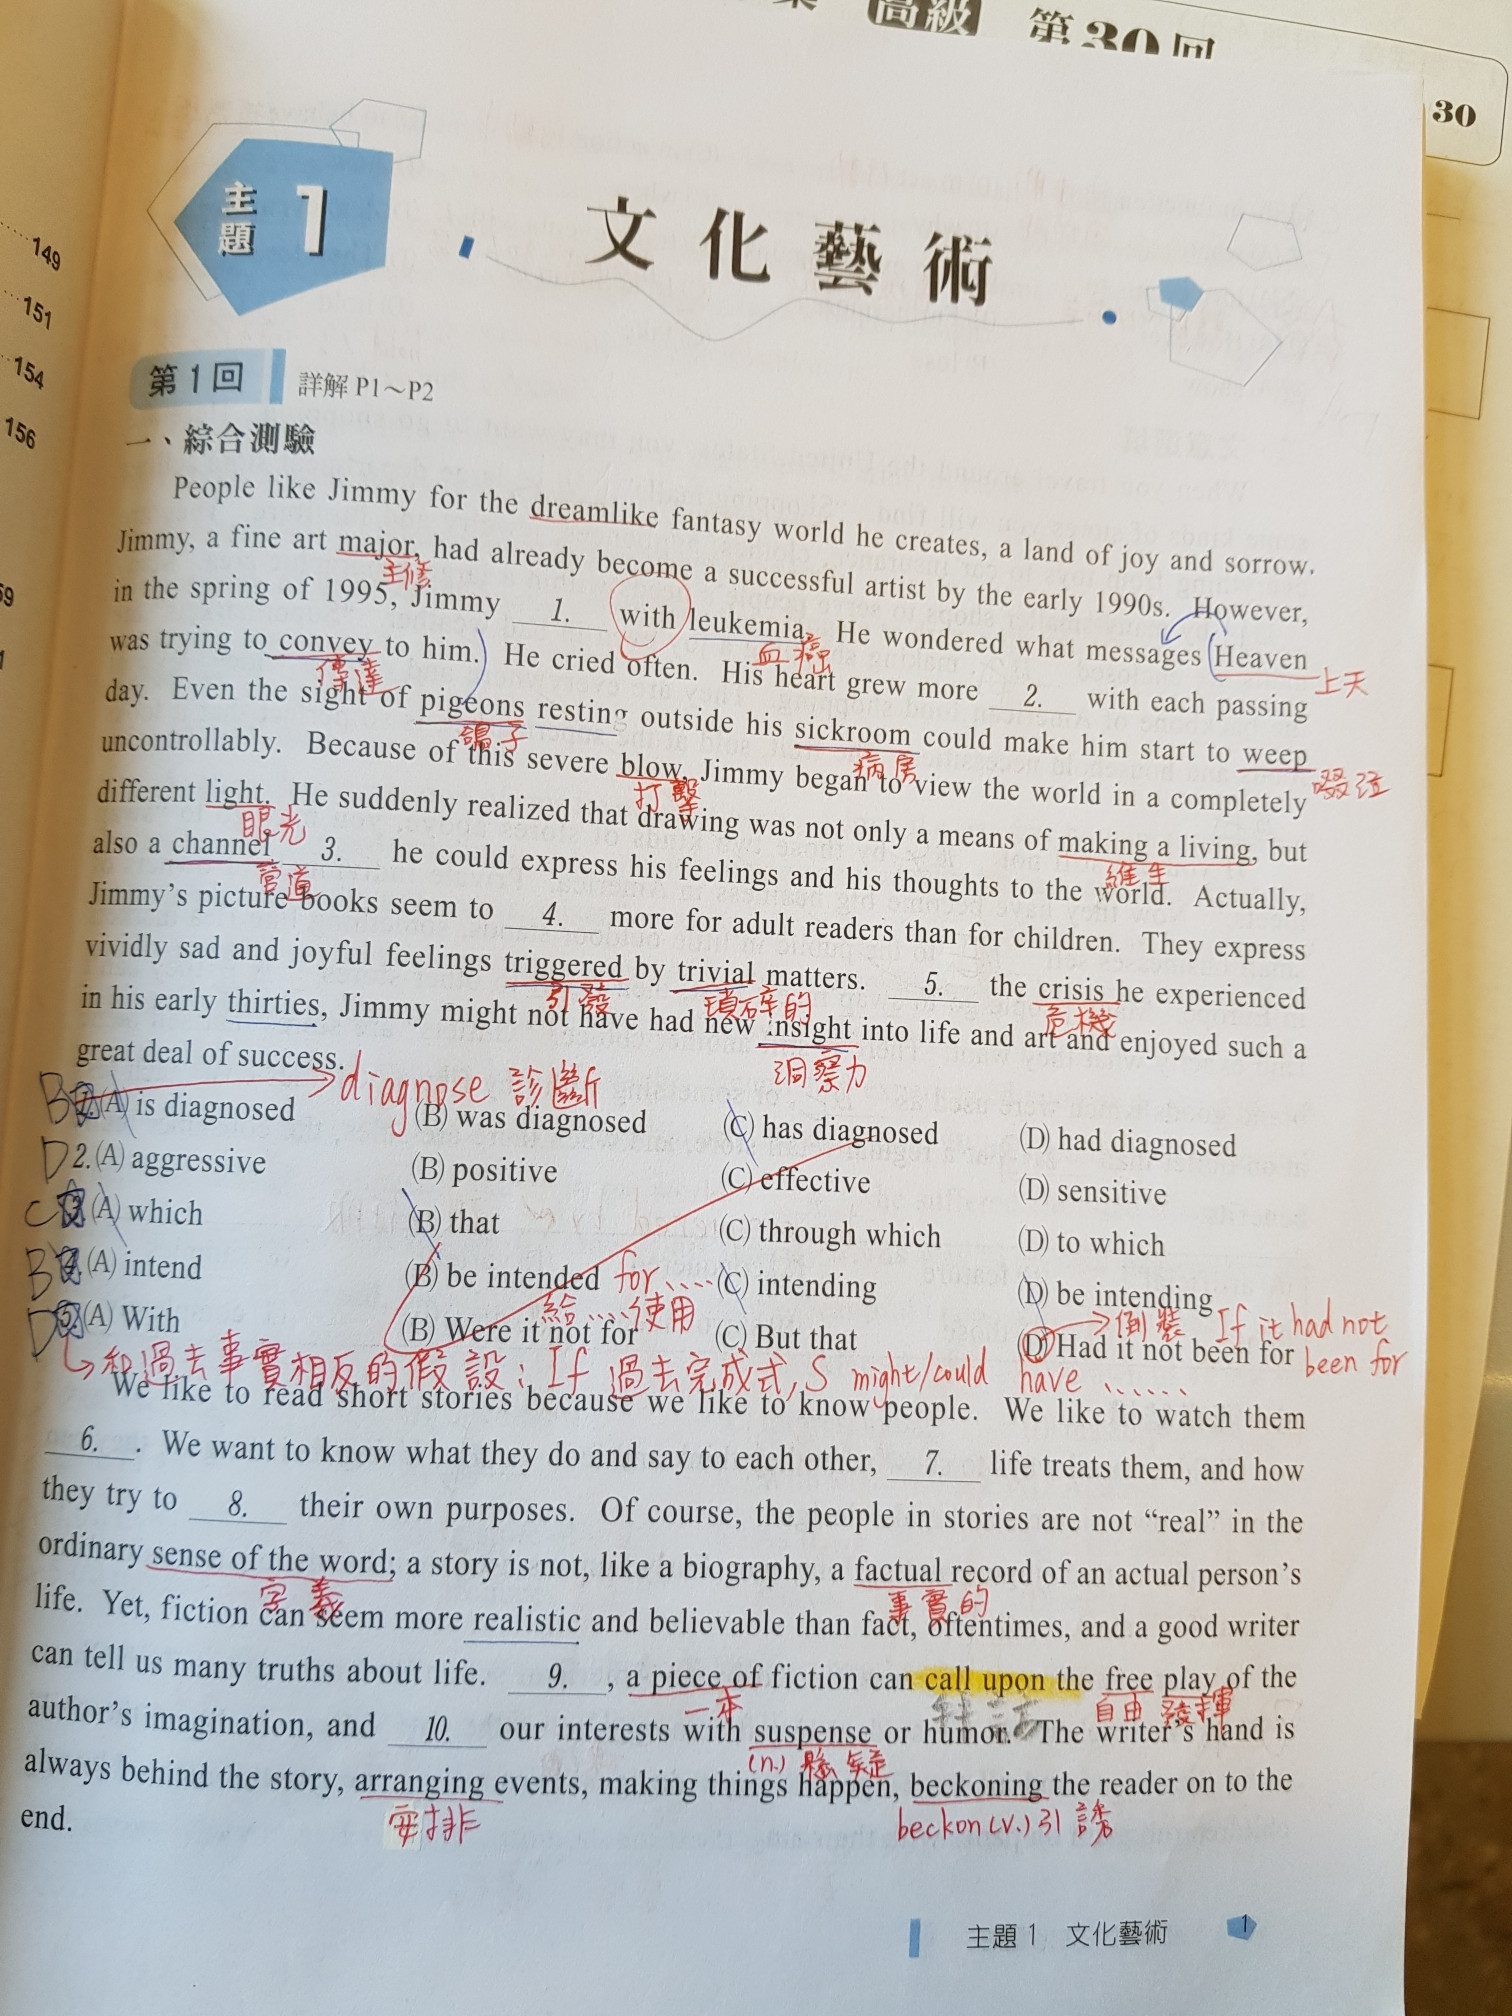 高級 第30回
30
149
151
154
156
主題 1
文化藝術
第1回 詳解 P1～P2
一、綜合測驗
People like Jimmy for the dreamlike fantasy world he creates, a land of joy and sorrow.
Jimmy, a fine art major, had already become a successful artist by the early 1990s. However,
主修
in the spring of 1995, Jimmy 1. with leukemia. He wondered what messages Heaven
血癌
上天
was trying to convey to him. He cried often. His heart grew more 2. with each passing
傳達
day. Even the sight of pigeons resting outside his sickroom could make him start to weep
鴿子
病房
啜泣
uncontrollably. Because of this severe blow, Jimmy began to view the world in a completely
打擊
different light. He suddenly realized that drawing was not only a means of making a living, but
眼光
維生
also a channel 3. he could express his feelings and his thoughts to the world. Actually,
管道
Jimmy's picture books seem to 4. more for adult readers than for children. They express
vividly sad and joyful feelings triggered by trivial matters. 5. the crisis he experienced
引發
瑣碎的
危機
in his early thirties, Jimmy might not have had new insight into life and art and enjoyed such a
洞察力
great deal of success.
diagnose 診斷
B 1.(A) is diagnosed (B) was diagnosed (C) has diagnosed (D) had diagnosed
D 2.(A) aggressive (B) positive (C) effective (D) sensitive
C 3.(A) which (B) that (C) through which (D) to which
B 4.(A) intend (B) be intended for..... (C) intending (D) be intending
給....使用
倒裝 If it had not been for
D 5.(A) With (B) Were it not for (C) But that (D) Had it not been for
和過去事實相反的假設: If 過去完成式, S might/could have ......
We like to read short stories because we like to know people. We like to watch them
6. . We want to know what they do and say to each other, 7. life treats them, and how
they try to 8. their own purposes. Of course, the people in stories are not "real" in the
ordinary sense of the word; a story is not, like a biography, a factual record of an actual person's
字義
事實的
life. Yet, fiction can seem more realistic and believable than fact, oftentimes, and a good writer
can tell us many truths about life. 9. , a piece of fiction can call upon the free play of the
一本
自由 發揮
author's imagination, and 10. our interests with suspense or humor. The writer's hand is
(n.) 懸疑
always behind the story, arranging events, making things happen, beckoning the reader on to the
安排
beckon(v.) 引誘
end.
主題 1 文化藝術 1